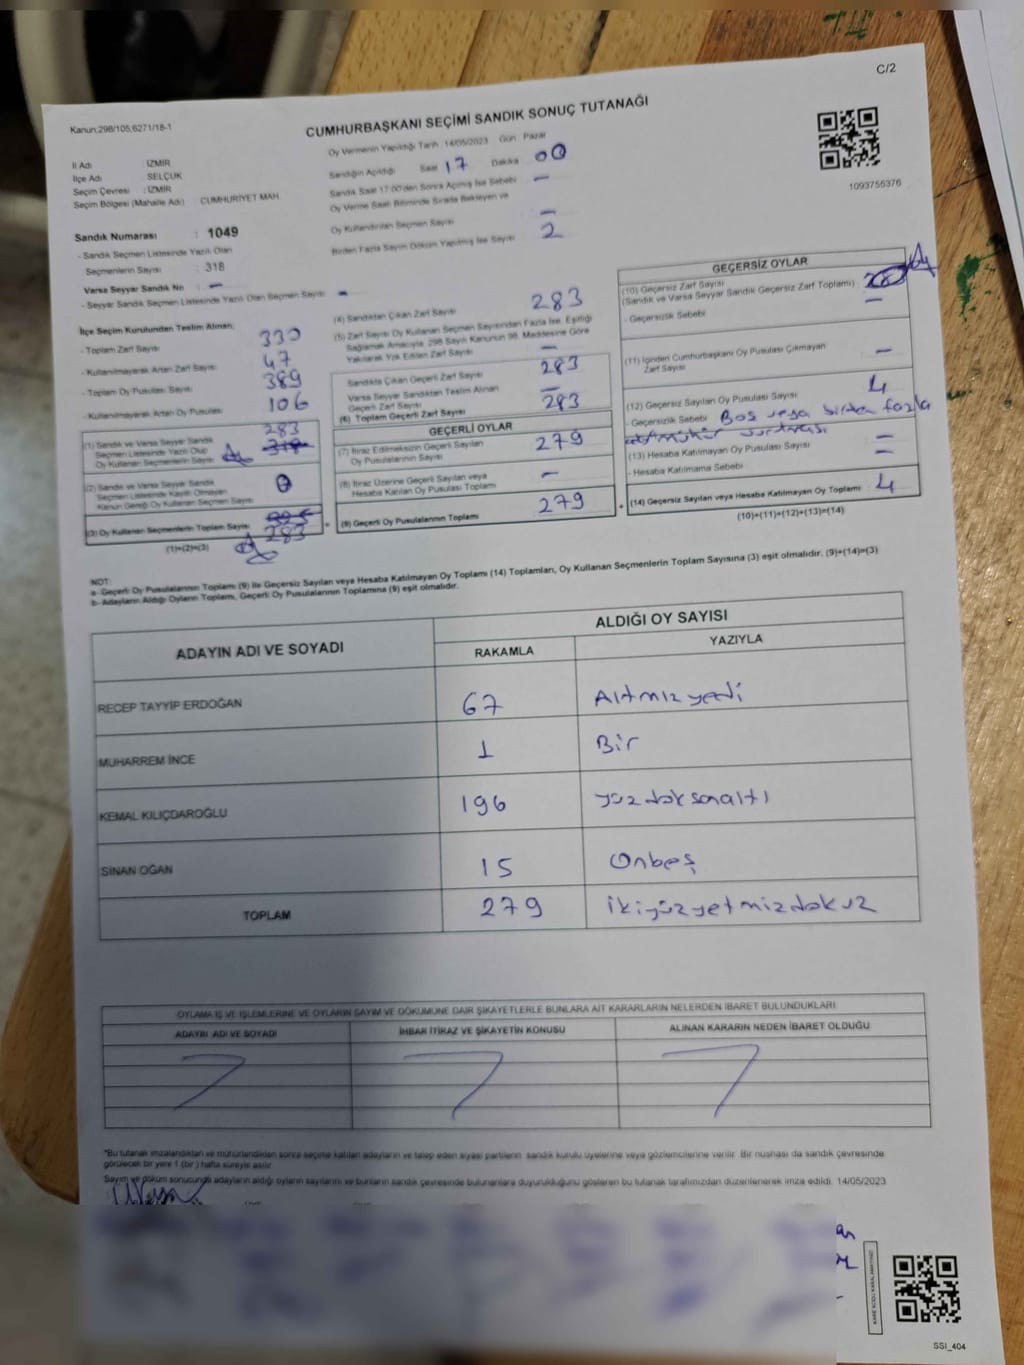 C/2
Kanun:298/105;6271/18-1
CUMHURBAŞKANI SEÇİMİ SANDIK SONUÇ TUTANAĞI
Oy Vermenin Yapıldığı Tarih :14/05/2023 Gün : Pazar
İl Adı : İZMİR
İlçe Adı : SELÇUK
Seçim Çevresi : İZMİR
Seçim Bölgesi (Mahalle Adı) CUMHURİYET MAH
Sandığın Açıldığı Saat 17 Dakika 00
Sandık Saat 17:00'den Sonra Açılmış İse Sebebi –
Oy Verme Saati Bitiminde Sırada Bekleyen ve
Oy Kullandırılan Seçmen Sayısı –
Birden Fazla Sayım Döküm Yapılmış İse Sayısı 2
1093755376
Sandık Numarası : 1049
- Sandık Seçmen Listesinde Yazılı Olan
Seçmenlerin Sayısı : 318
Varsa Seyyar Sandık No : –
- Seyyar Sandık Seçmen Listesinde Yazılı Olan Seçmen Sayısı –
İlçe Seçim Kurulundan Teslim Alınan;
- Toplam Zarf Sayısı 330
- Kullanılmayarak Artan Zarf Sayısı 47
- Toplam Oy Pusulası Sayısı 389
- Kullanılmayarak Artan Oy Pusulası 106
(1) Sandık ve Varsa Seyyar Sandık
Seçmen Listesinde Yazılı Olup
Oy Kullanan Seçmenlerin Sayısı 283 318
(2) Sandık ve Varsa Seyyar Sandık
Seçmen Listesinde Kayıtlı Olmayan
Kanun Gereği Oy Kullanan Seçmen Sayısı 0
(3) Oy Kullanan Seçmenlerin Toplam Sayısı 283
(1)+(2)=(3)
(4) Sandıktan Çıkan Zarf Sayısı 283
(5) Zarf Sayısı Oy Kullanan Seçmen Sayısından Fazla İse, Eşitliği
Sağlamak Amacıyla, 298 Sayılı Kanunun 98. Maddesine Göre
Yakılarak Yok Edilen Zarf Sayısı –
Sandıkta Çıkan Geçerli Zarf Sayısı 283
Varsa Seyyar Sandıktan Teslim Alınan
Geçerli Zarf Sayısı –
(6) Toplam Geçerli Zarf Sayısı 283
GEÇERLİ OYLAR
(7) İtiraz Edilmeksizin Geçerli Sayılan
Oy Pusulalarının Sayısı 279
(8) İtiraz Üzerine Geçerli Sayılan veya
Hesaba Katılan Oy Pusulası Toplamı –
(9) Geçerli Oy Pusulalarının Toplamı 279
GEÇERSİZ OYLAR
(10) Geçersiz Zarf Sayısı
(Sandık ve Varsa Seyyar Sandık Geçersiz Zarf Toplamı) –
- Geçersizlik Sebebi
(11) İçinden Cumhurbaşkanı Oy Pusulası Çıkmayan
Zarf Sayısı –
(12) Geçersiz Sayılan Oy Pusulası Sayısı 4
- Geçersizlik Sebebi Boş veya birden fazla
(13) Hesaba Katılmayan Oy Pusulası Sayısı –
- Hesaba Katılmama Sebebi –
(14) Geçersiz Sayılan veya Hesaba Katılmayan Oy Toplamı 4
(10)+(11)+(12)+(13)=(14)
NOT:
a- Geçerli Oy Pusulalarının Toplamı (9) ile Geçersiz Sayılan veya Hesaba Katılmayan Oy Toplamı (14) Toplamları, Oy Kullanan Seçmenlerin Toplam Sayısına (3) eşit olmalıdır. (9)+(14)=(3)
b- Adayların Aldığı Oyların Toplamı, Geçerli Oy Pusulalarının Toplamına (9) eşit olmalıdır.
ADAYIN ADI VE SOYADI
ALDIĞI OY SAYISI
RAKAMLA YAZIYLA
RECEP TAYYİP ERDOĞAN 67 Altmışyedi
MUHARREM İNCE 1 Bir
KEMAL KILIÇDAROĞLU 196 yüzdoksanaltı
SİNAN OĞAN 15 Onbeş
TOPLAM 279 ikiyüzyetmizdokuz
OYLAMA İŞ VE İŞLEMLERİNE VE OYLARIN SAYIM VE DÖKÜMÜNE DAİR ŞİKAYETLERLE BUNLARA AİT KARARLARIN NELERDEN İBARET BULUNDUKLARI
ADAYIN ADI VE SOYADI İHBAR İTİRAZ VE ŞİKAYETİN KONUSU ALINAN KARARIN NEDEN İBARET OLDUĞU
*Bu tutanak imzalandıktan ve mühürlendikten sonra seçime katılan adayların ve talep eden siyasi partilerin sandık kurulu üyelerine veya gözlemcilerine verilir. Bir nüshası da sandık çevresinde
görülecek bir yere 1 (bir ) hafta süreyle asılır.
Sayım ve döküm sonucunda adayların aldığı oyların sayılarını ve bunların sandık çevresinde bulunanlara duyurulduğunu gösteren bu tutanak tarafımızdan düzenlenerek imza edildi. 14/05/2023
KARE KODU KARALAMAYINIZ!
SSI_404